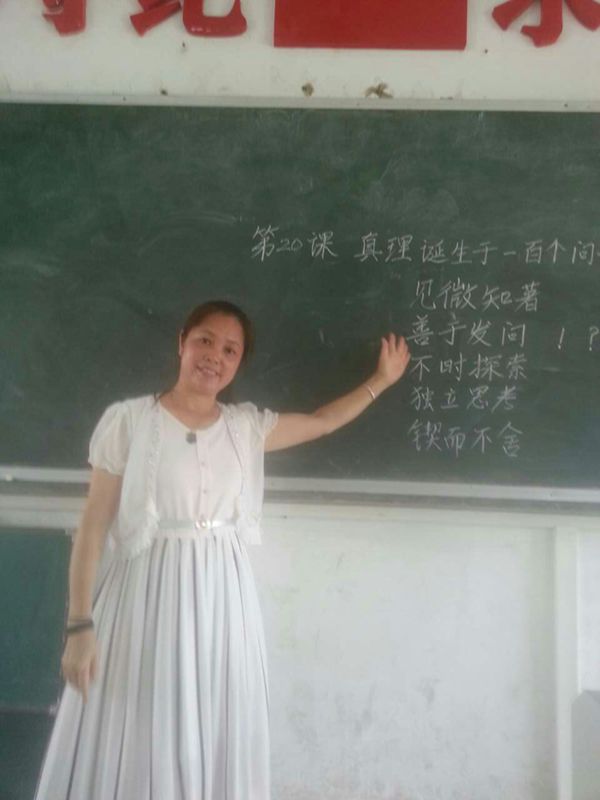 第20课 真理诞生于一百个问
见微知著
善于发问 ！？
不时探索
独立思考
锲而不舍